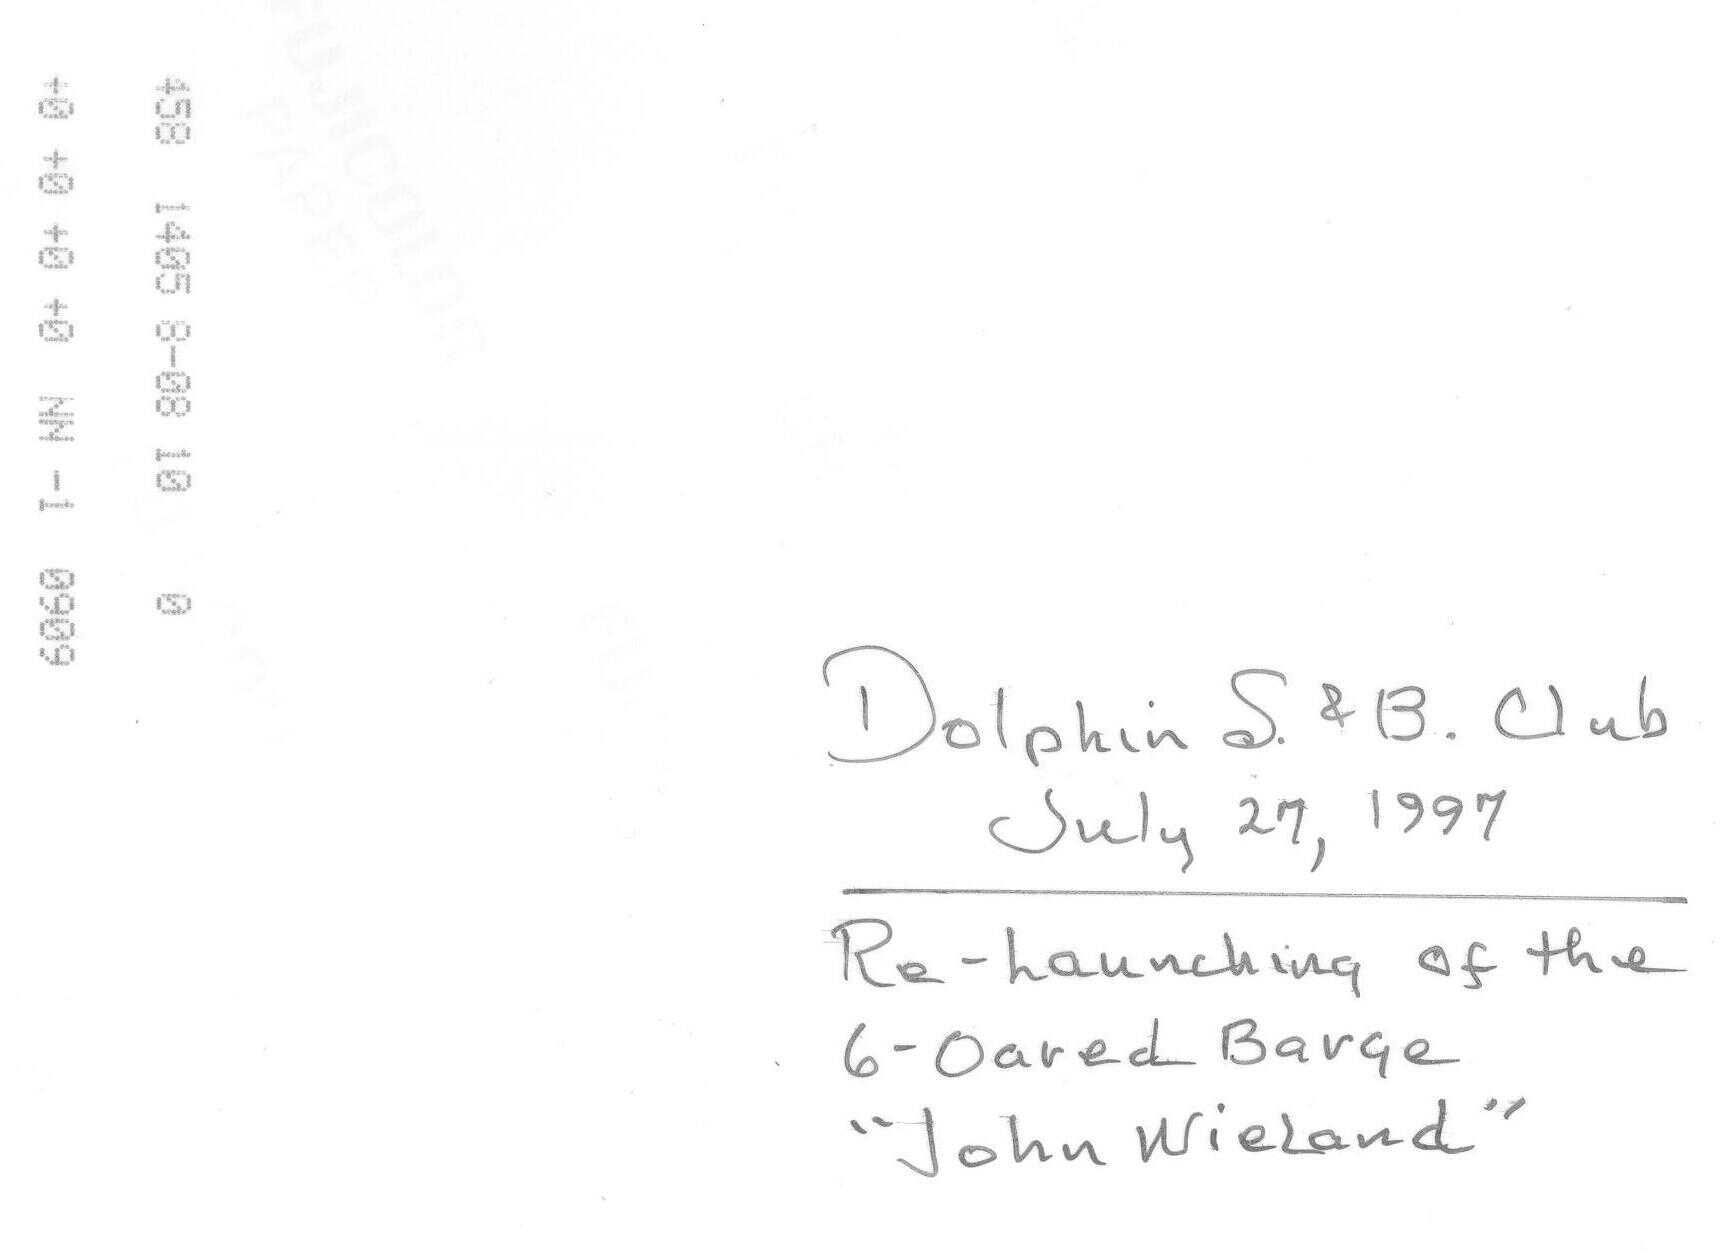 458 1405 8-08 10 0
+0 +0 +0 +0 NN -1 0909
Dolphin S. & B. Club
July 27, 1997
Re-Launching of the
6-Oared Barge
"John Wieland"